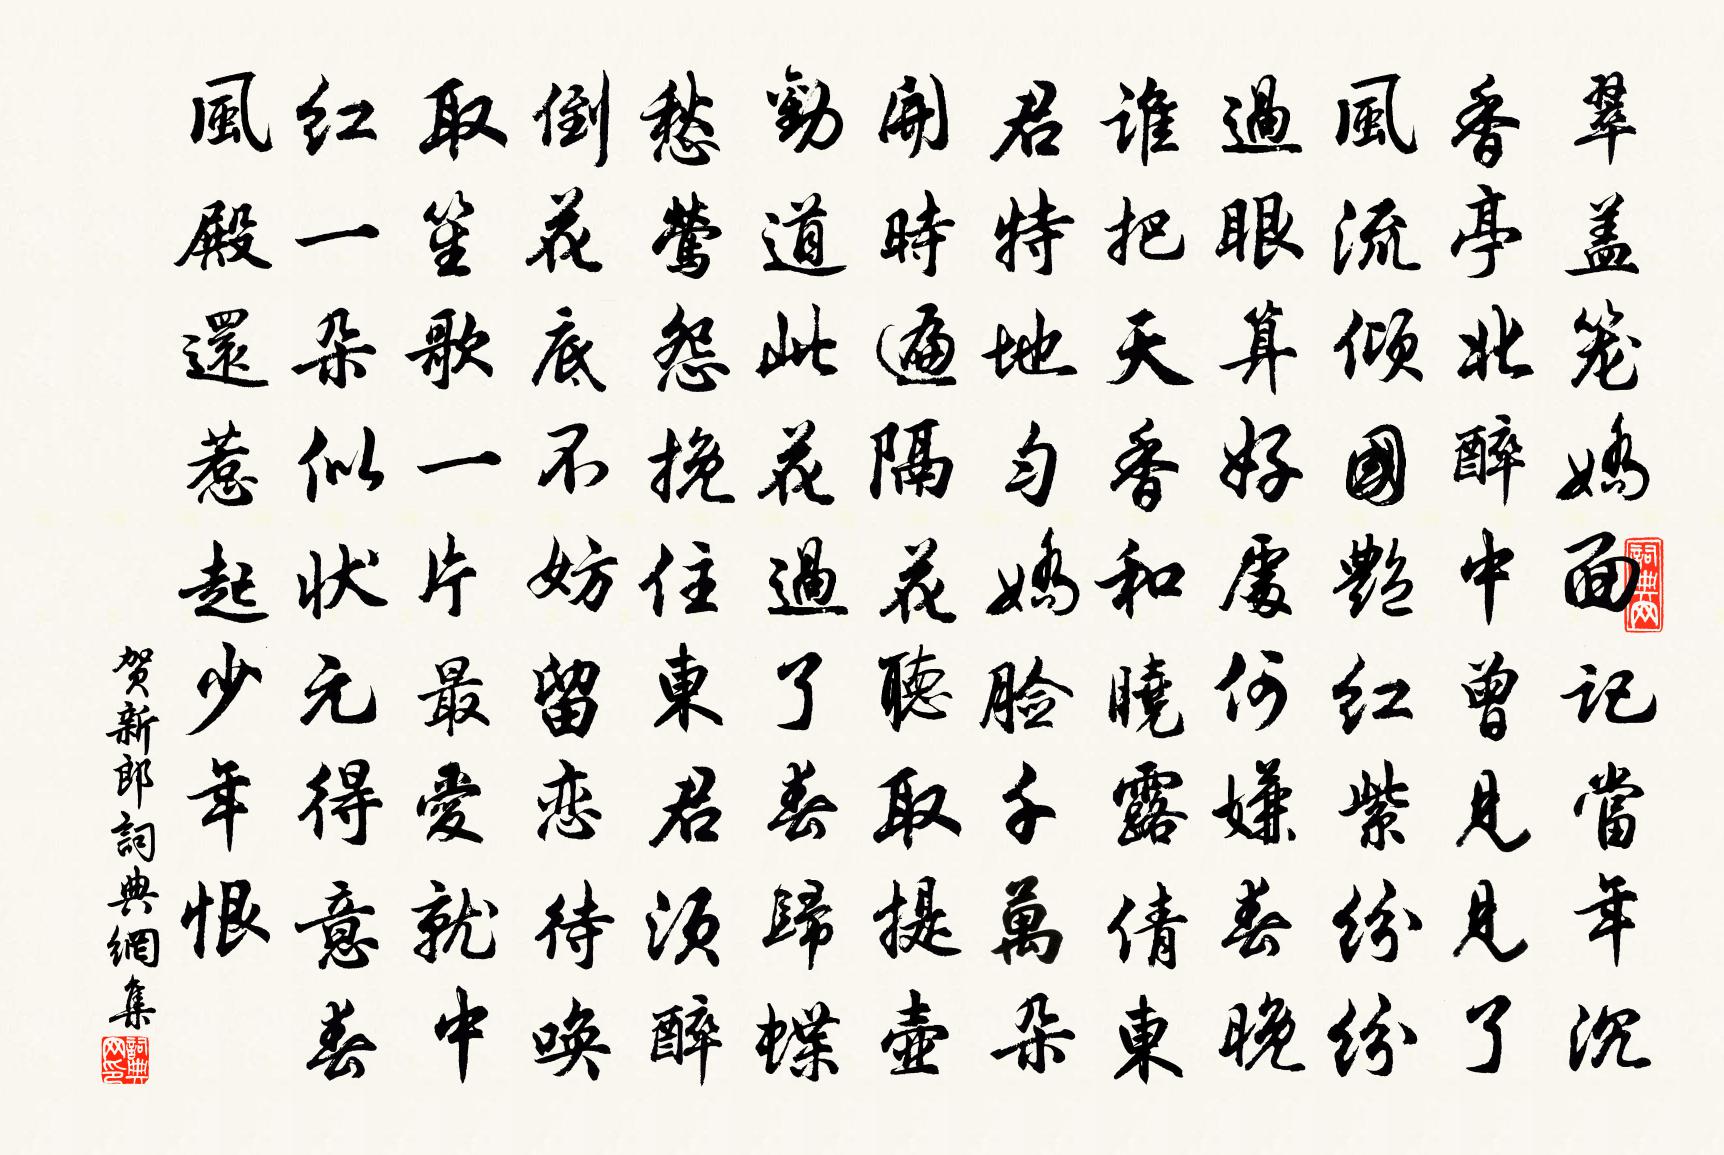 翠蓋笼嬌面記當年沉
香亭北醉中曾見見了
風流傾國艷红紫紛紛
過眼算好處何嫌春晚
誰把天香和曉露倩東
君特地匀嬌脸千萬朵
開時遍隔花聽取提壺
勸道此花過了春歸蝶
愁鶯怨挽住東君须醉
倒花底不妨留恋待唤
取笙歌一片最愛就中
红一朵似状元得意春
風殿還惹起少年恨
贺新郎詞典網集
詞典网
詞典网印